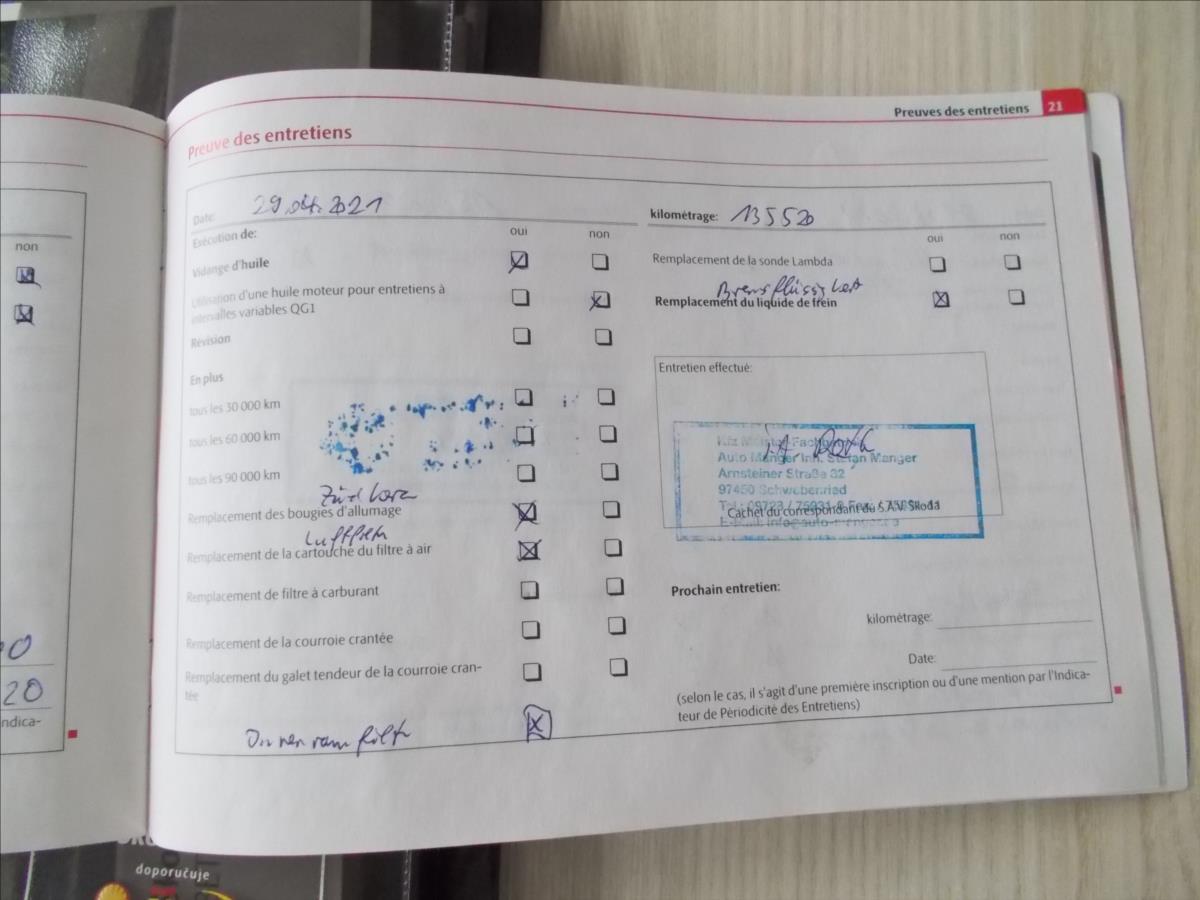 Preuves des entretiens 21
Preuve des entretiens
Date: 29. Okt. 2021
kilométrage: 135520
Exécution de:
oui non
oui non
Vidange d'huile
Utilisation d'une huile moteur pour entretiens à
intervalles variables QG1
Révision
En plus
tous les 30 000 km
tous les 60 000 km
tous les 90 000 km
Remplacement des bougies d'allumage
Remplacement de la cartouche du filtre à air
Remplacement de filtre à carburant
Remplacement de la courroie crantée
Remplacement du galet tendeur de la courroie cran-
tée
Remplacement de la sonde Lambda
Remplacement du liquide de frein
Entretien effectué:
Auto Manger Inh. Stefan Manger
Arnsteiner Straße 32
97450 Schwebenried
Cachet du correspondant du S.A.V. Skoda
Prochain entretien:
kilométrage:
Date:
(selon le cas, il s'agit d'une première inscription ou d'une mention par l'Indica-
teur de Périodicité des Entretiens)
non
20
ndica-
doporučuje